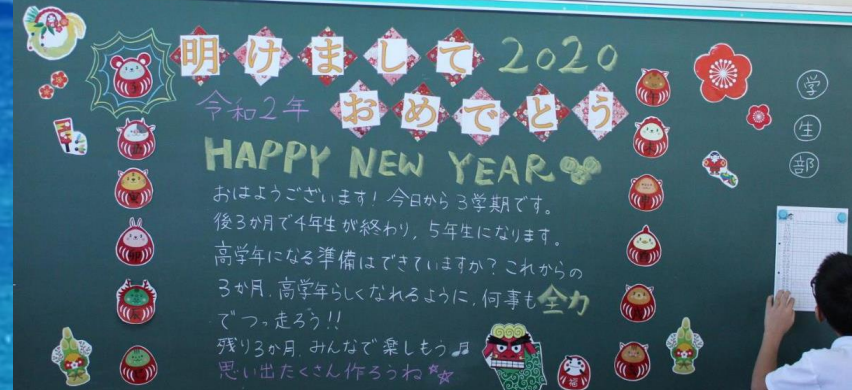 明けまして 2020
令和2年 おめでとう
HAPPY NEW YEAR
おはようございます! 今日から3学期です。
後3か月で4年生が終わり、5年生になります。
高学年になる準備はできていますか? これからの
3か月、高学年らしくなれるように、何事も全力
でつっ走ろう!!
残り3か月、みんなで楽しもう♫
思い出たくさん作ろうね☆☆
学
生
部